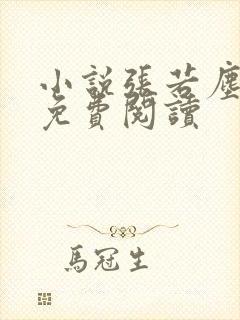 小說張若塵
免費閱讀
馬冠生